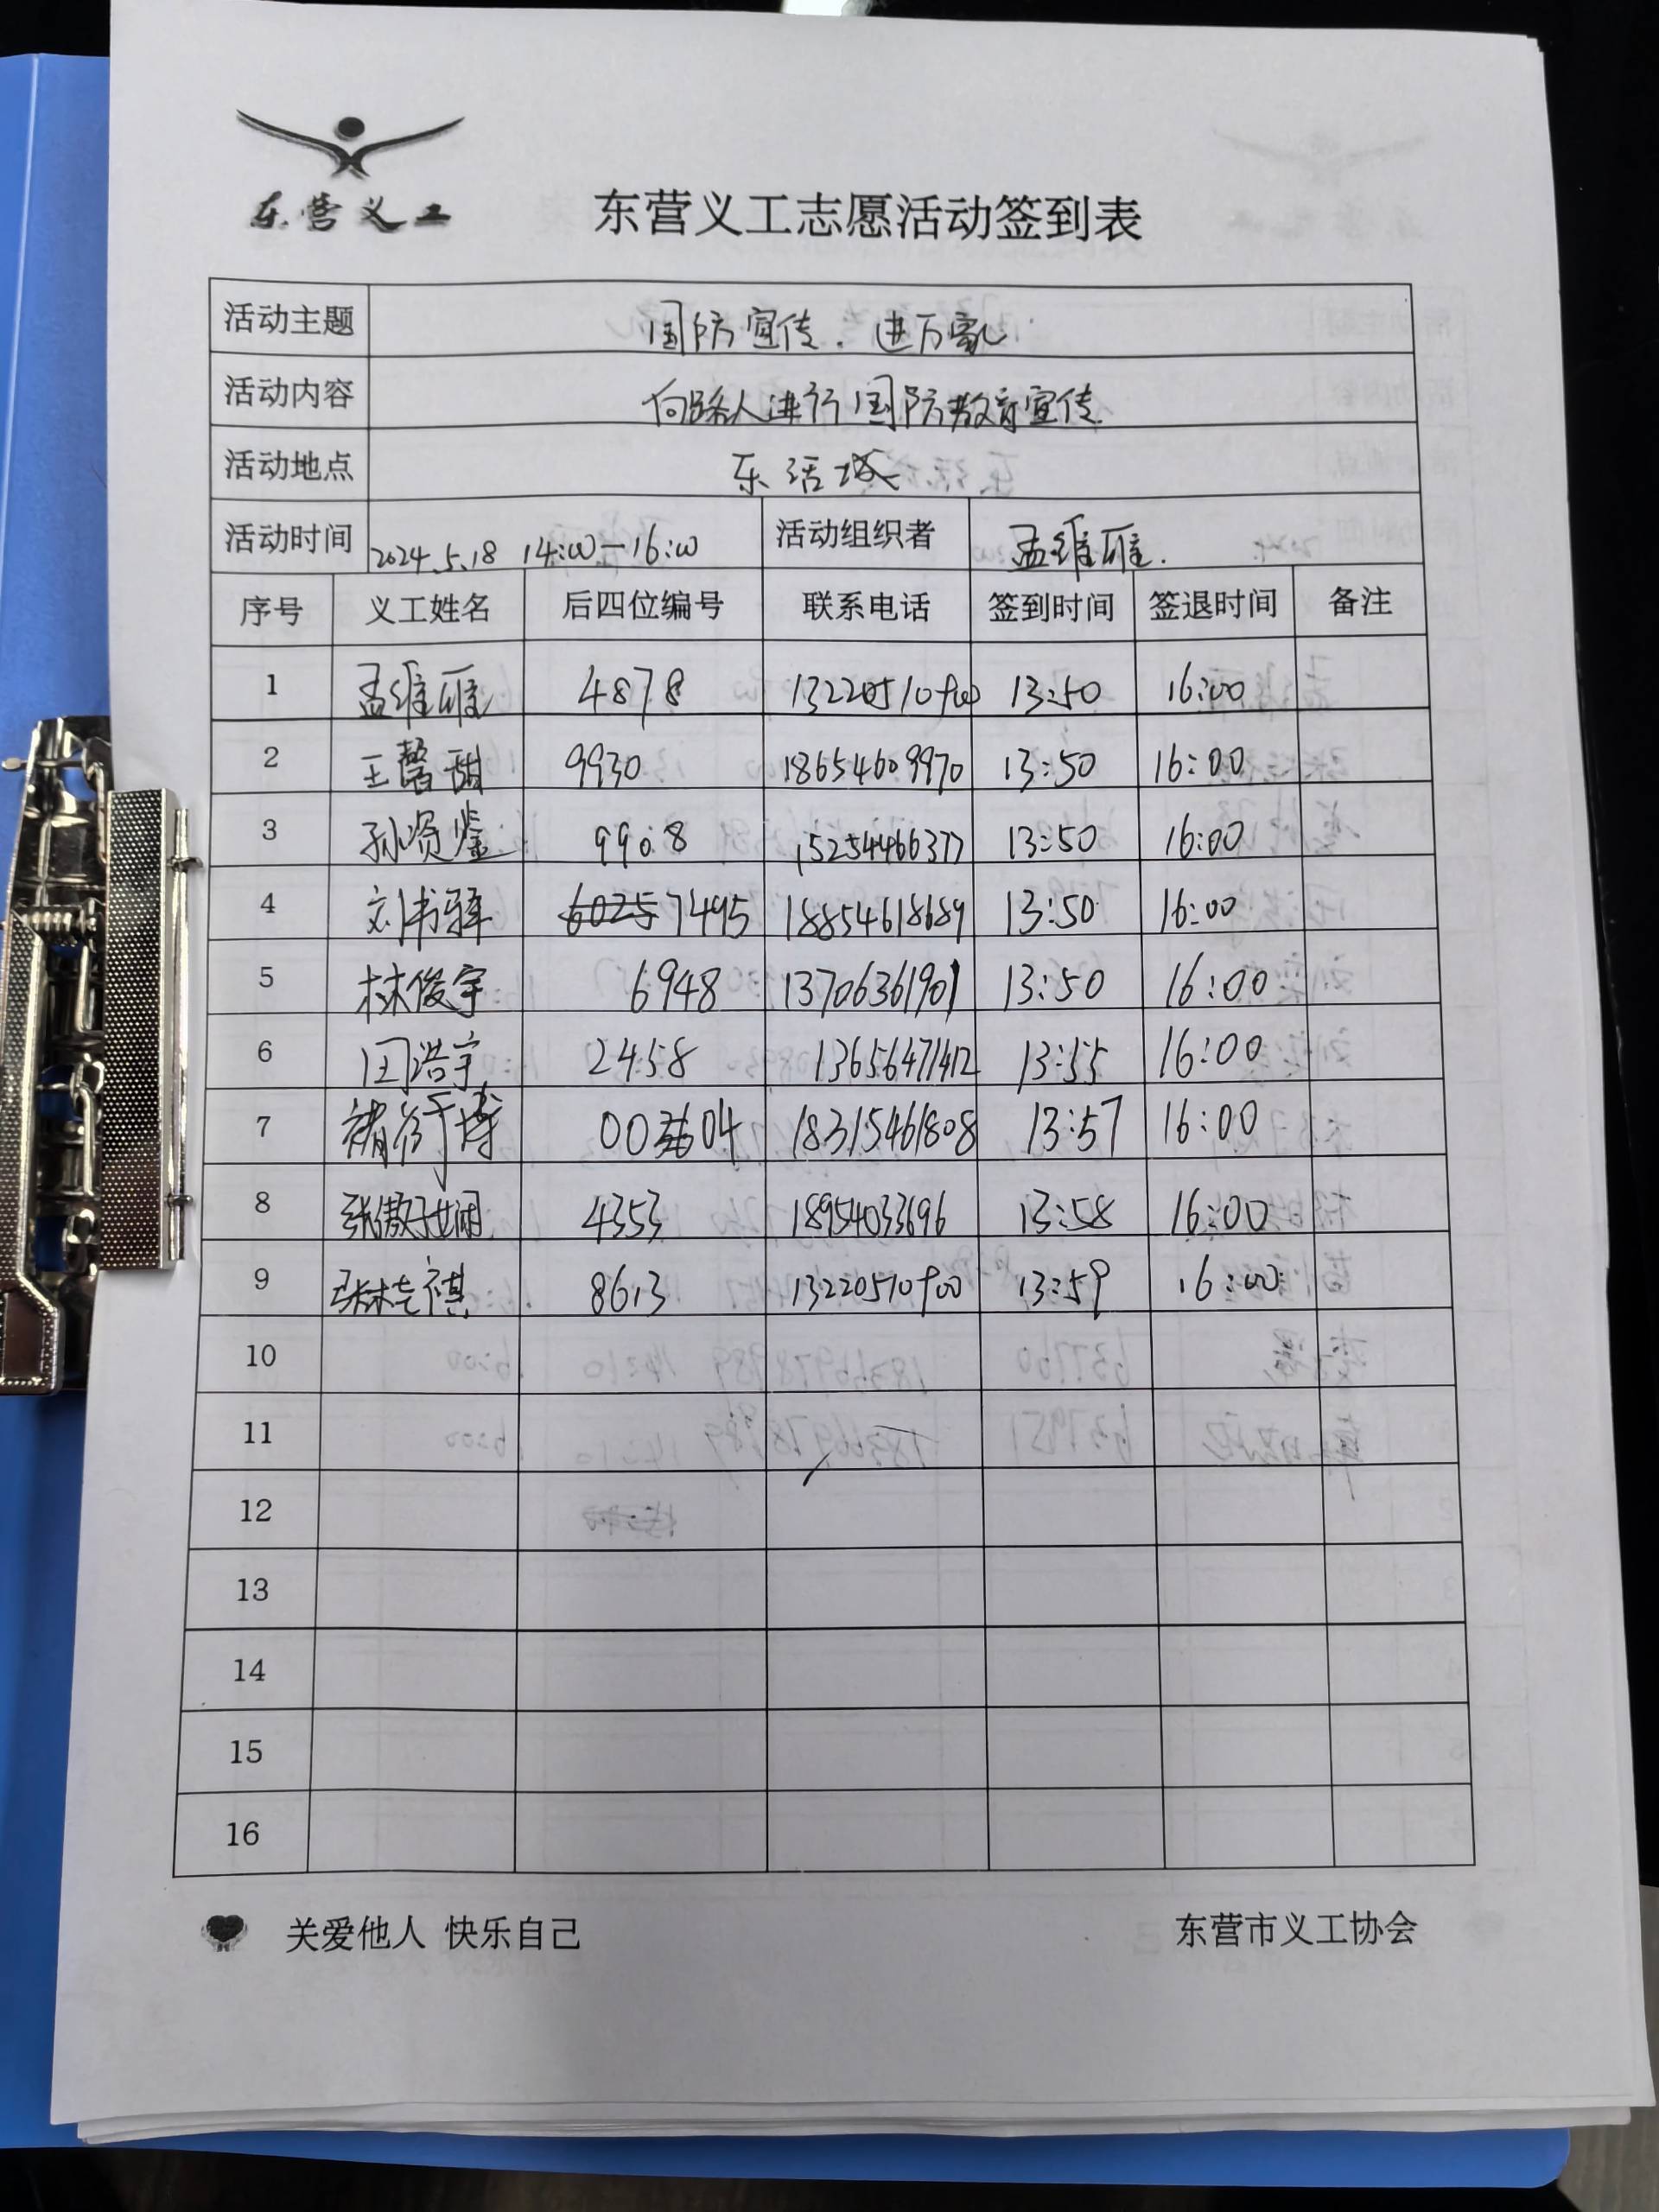 东营义工
东营义工志愿活动签到表
活动主题 国防宣传.进万家
活动内容 向路人进行国防教育宣传
活动地点 东活城
活动时间 2024.5.18 14:00—16:00 活动组织者 孟维雁.
序号 义工姓名 后四位编号 联系电话 签到时间 签退时间 备注
1 孟维雁 4878 13220510900 13:50 16:00
2 王馨甜 9930 18654609970 13:50 16:00
3 孙贤鉴 9908 15254466377 13:50 16:00
4 刘书驿 7495 18854618689 13:50 16:00
5 林俊宇 6948 13706361901 13:50 16:00
6 田浩宇 2458 13656471412 13:55 16:00
7 褚衍博 0004 18315461808 13:57 16:00
8 4353 18954033696 13:58 16:00
9 8613 13220510900 13:59 16:00
10
11
12
13
14
15
16
关爱他人 快乐自己 东营市义工协会